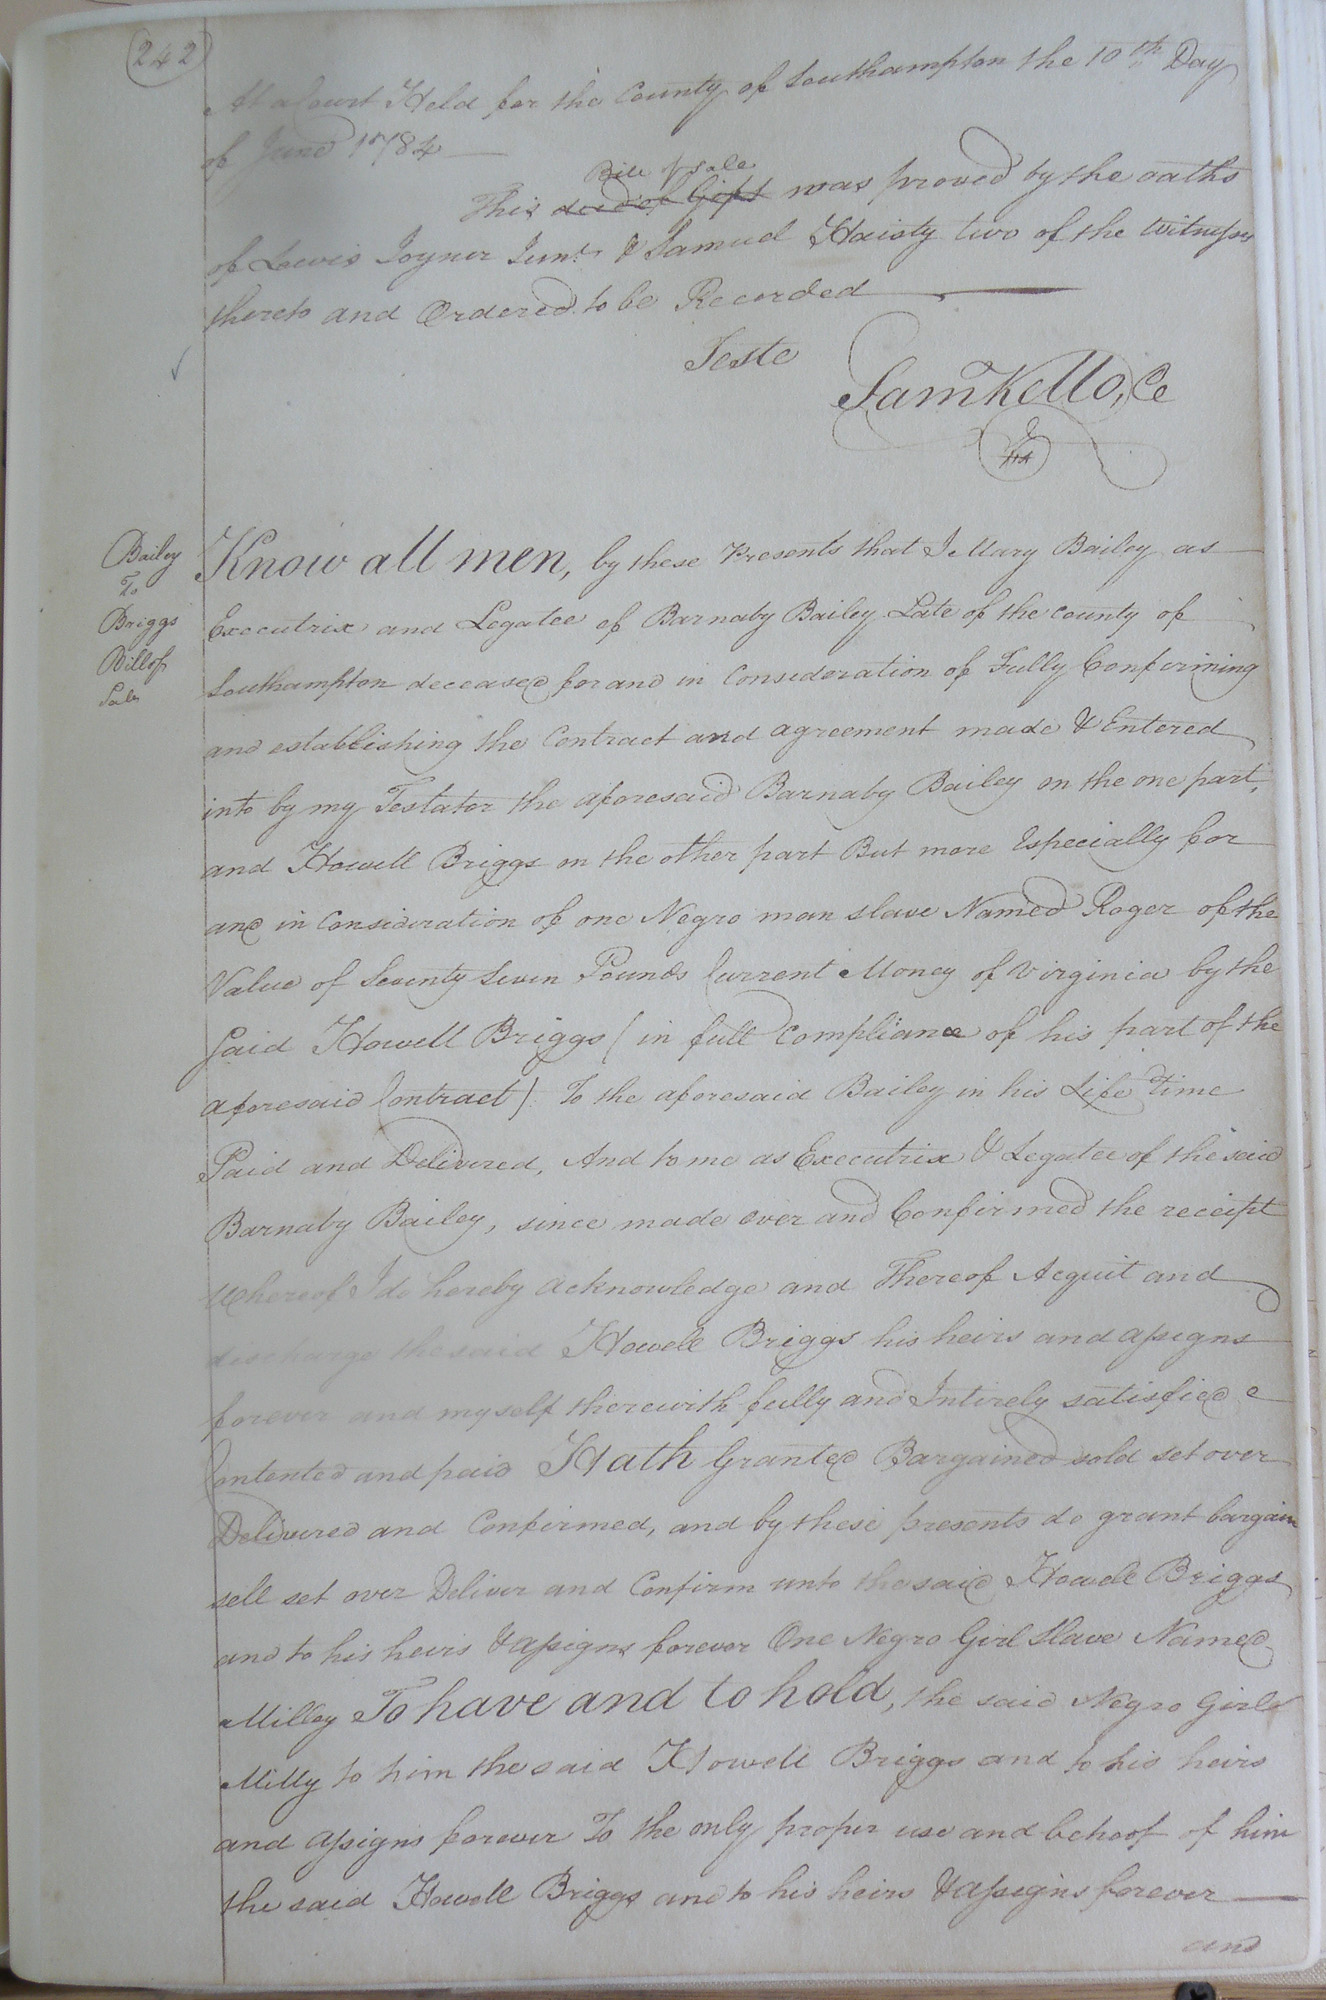 242
At a Court Held for the County of Southampton the 10th Day
of June 1784
Bill of Sale
This deed of Gift was proved by the oaths
of Lewis Joyner Junr. & Samuel Haisty two of the Witnesses
thereto and Ordered to be Recorded
Teste
Saml Kello, Cc
Bailey
To
Briggs
Bill of
Sale
Know all men, by these Presents that I Mary Bailey as
Executrix and Legatee of Barnaby Bailey Late of the county of
Southampton deceased for and in Consideration of Fully Confirming
and establishing the Contract and agreement made & Entered
into by my Testator the aforesaid Barnaby Bailey on the one part,
and Howell Briggs on the other part But more Especially for
and in Consideration of one Negro man slave Named Roger of the
Value of Seventy Seven Pounds Current Money of Virginia by the
said Howell Briggs (in full Compliance of his part of the
aforesaid Contract) To the aforesaid Bailey in his Life Time
Paid and Delivered, And to me as Executrix & Legatee of the said
Barnaby Bailey, since made over and Confirmed the receipt
Whereof I do hereby acknowledge and Thereof Acquit and
discharge the said Howell Briggs his heirs and assigns
forever and myself therewith fully and Intirely satisfied
Contented and paid Hath Granted Bargained sold set over
Delivered and Confirmed, and by these presents do grant bargain
sell set over Deliver and Confirm unto the said Howell Briggs
and to his heirs & assigns forever One Negro Girl Slave Named
Milley To have and to hold, the said Negro Girl
Milly to him the said Howell Briggs and to his heirs
and assigns forever To the only proper use and behoof of him
the said Howell Briggs and to his heirs & assigns forever
and